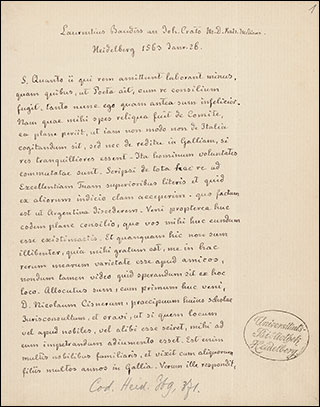 1
Laurentius Baudiss an Joh. Crato
Heidelberg 1563 Janr. 26.
S. Quanto ii qui rem amittunt laborant minus,
quam quibus, ut Poeta ait, cum re consilium
fugit, tanto nunc ego quam antea sum infelicior.
Nam quae mihi spes reliqua fuit de Comite,
ea plane periit, ut iam non modo non de Italia
cogitandum sit, sed nec de reditu in Galliam, si
res tranquilliores essent. Ita hominum voluntates
commutatae sunt. Scripsi de tota hac re ad
Excellentiam Tuam superioribus literis et quid
ex aliorum indicio clam acceperim. quo factum
est ut Argentina discederem. Veni propterea huc
eodem plane consilio, quo vos mihi huc eundum
esse existimastis. Et quanquam hic non sum
illibenter, quia mihi gratum est, me in hac
rerum mearum varietate esse apud amicos,
nondum tamen video quid sperandum sit ex hoc
loco. Allocutus sum, cum primum huc veni,
D. Nicolaum Cisnerum, praecipuum huius scholae
Jurisconsultum, et oravi, ut si quem locum
vel apud nobiles, vel alibi esse sciret, mihi ad
eum impetrandum adiumento esset. Est enim
multis nobilibus familiaris, et vixit cum aliquorum
filiis multos annos in Gallia. Verum ille respondit,
Universitäts
Bibliothek
Heidelberg
Cod. Heid. 369, 371.